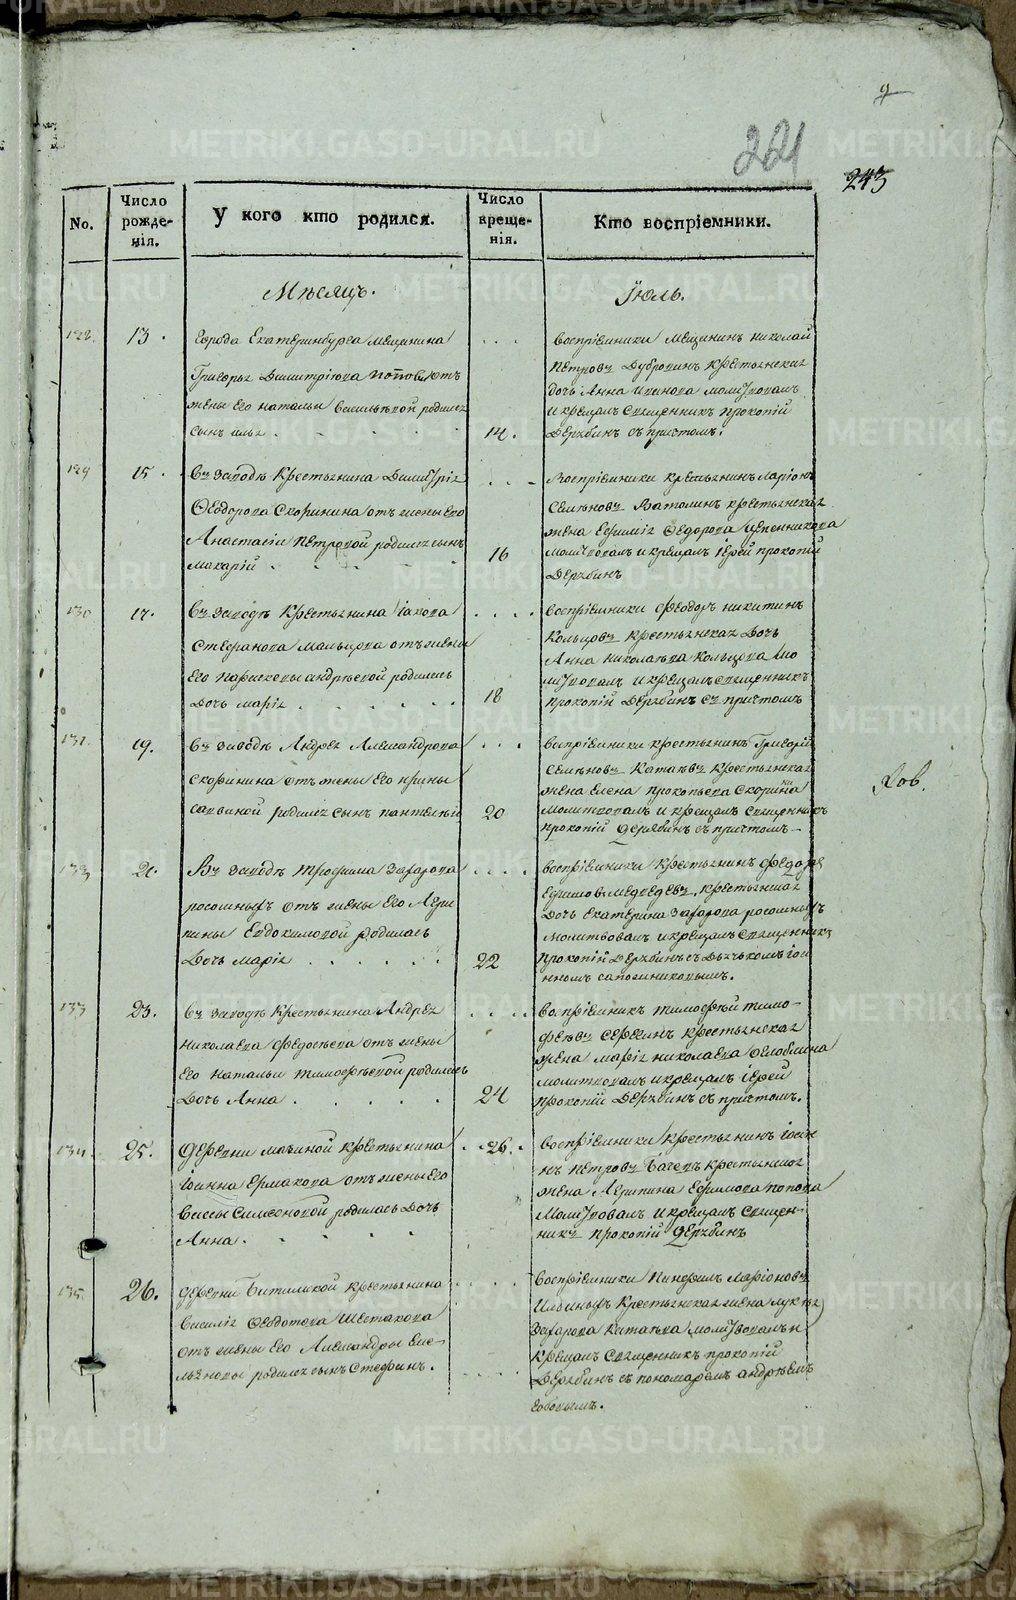 9
261
243
No.
Число рожде-нія.
У кого кто родился.
Число креще-нія.
Кто воспріемники.
Мѣсяцъ.
Іюль.
128. 13.
города Екатеринбурга мещанина
Григорья Димитріева Попова отъ
жены его Натальи Васильевой родился
сынъ Илья
14.
воспріемники мещанинъ николай
Петровъ Дубровинъ крестьянская
дочь Анна Иванова молитвовалъ
и крещалъ священникъ прокопій
Дерябинъ съ причтомъ.
129 15.
въ заводѣ Крестьянина Димитрія
Ѳеодорова Скоринина отъ жены его
Анастасіи Петровой родился сынъ
макарій
16
Воспріемники крестьянинъ Ларіонъ
Семеновъ Ваталинъ крестьянская
жена Ефимія Ѳедорова
молитвовалъ и крещалъ іерей прокопій
Дерябинъ
130 17.
въ заводѣ Крестьянина Іакова
Стефанова Мальцова отъ жены
его Парасковьи андреевой родилась
Дочь марія
18
воспріемники Ѳеодоръ никитинъ
Кольцовъ крестьянская Дочь
Анна николаева Кольцова мо
литвовалъ и крещалъ священникъ
прокопій Дерябинъ съ причтомъ
131. 19.
въ заводѣ Андрея Александрова
Скоринина отъ жены его ирины
саввиной родился сынъ пантелѣй
20
воспріемники крестьянинъ Григорій
Семеновъ Катаевъ крестьянская
жена Елена прокопьева Скоринина
молитвовалъ и крещалъ священникъ
прокопій Дерябинъ съ причтомъ
132 20.
Въ заводѣ Трофима Захарова
росомныхъ отъ жены его Агри
пины Евдокимовой родилась
Дочь марія
22
воспріемники крестьянинъ Ѳедоръ
Ефимовъ Медведевъ, крестьянская
Дочь Екатерина Захарова росомныхъ
молитвовалъ и крещалъ священникъ
прокопій Дерябинъ съ Дьячкомъ іоа
нномъ сапожниковымъ.
133 23.
въ заводѣ Крестьянина Андрея
николаева Ѳедосѣева отъ жены
его натальи тимофѣевой родилась
Дочь Анна
24
воспріемникъ тимофѣй тимо-
фѣевъ крестьянская
жена марія николаева
молитвовалъ и крещалъ іерей
прокопій Дерябинъ съ причтомъ.
134 25.
Деревни крестьянина
іоанна Ермакова отъ жены его
Вассы Симеоновой родилась Дочь
Анна.
26.
воспріемники крестьянинъ іоан
нъ петровъ крестьянская
жена Агрипина Ефимова попова
молитвовалъ и крещалъ священ-
никъ прокопій Дерябинъ
135 26.
Деревни Битимской крестьянина
Василія Ѳеодотова Шестакова
отъ жены его Александры Еме-
льяновы родился сынъ Стефанъ.
воспріемники Ларіоновъ
крестьянская жена
Захарова Катаева молитвовалъ и
крещалъ священникъ прокопій
Дерябинъ съ пономаремъ андреемъ